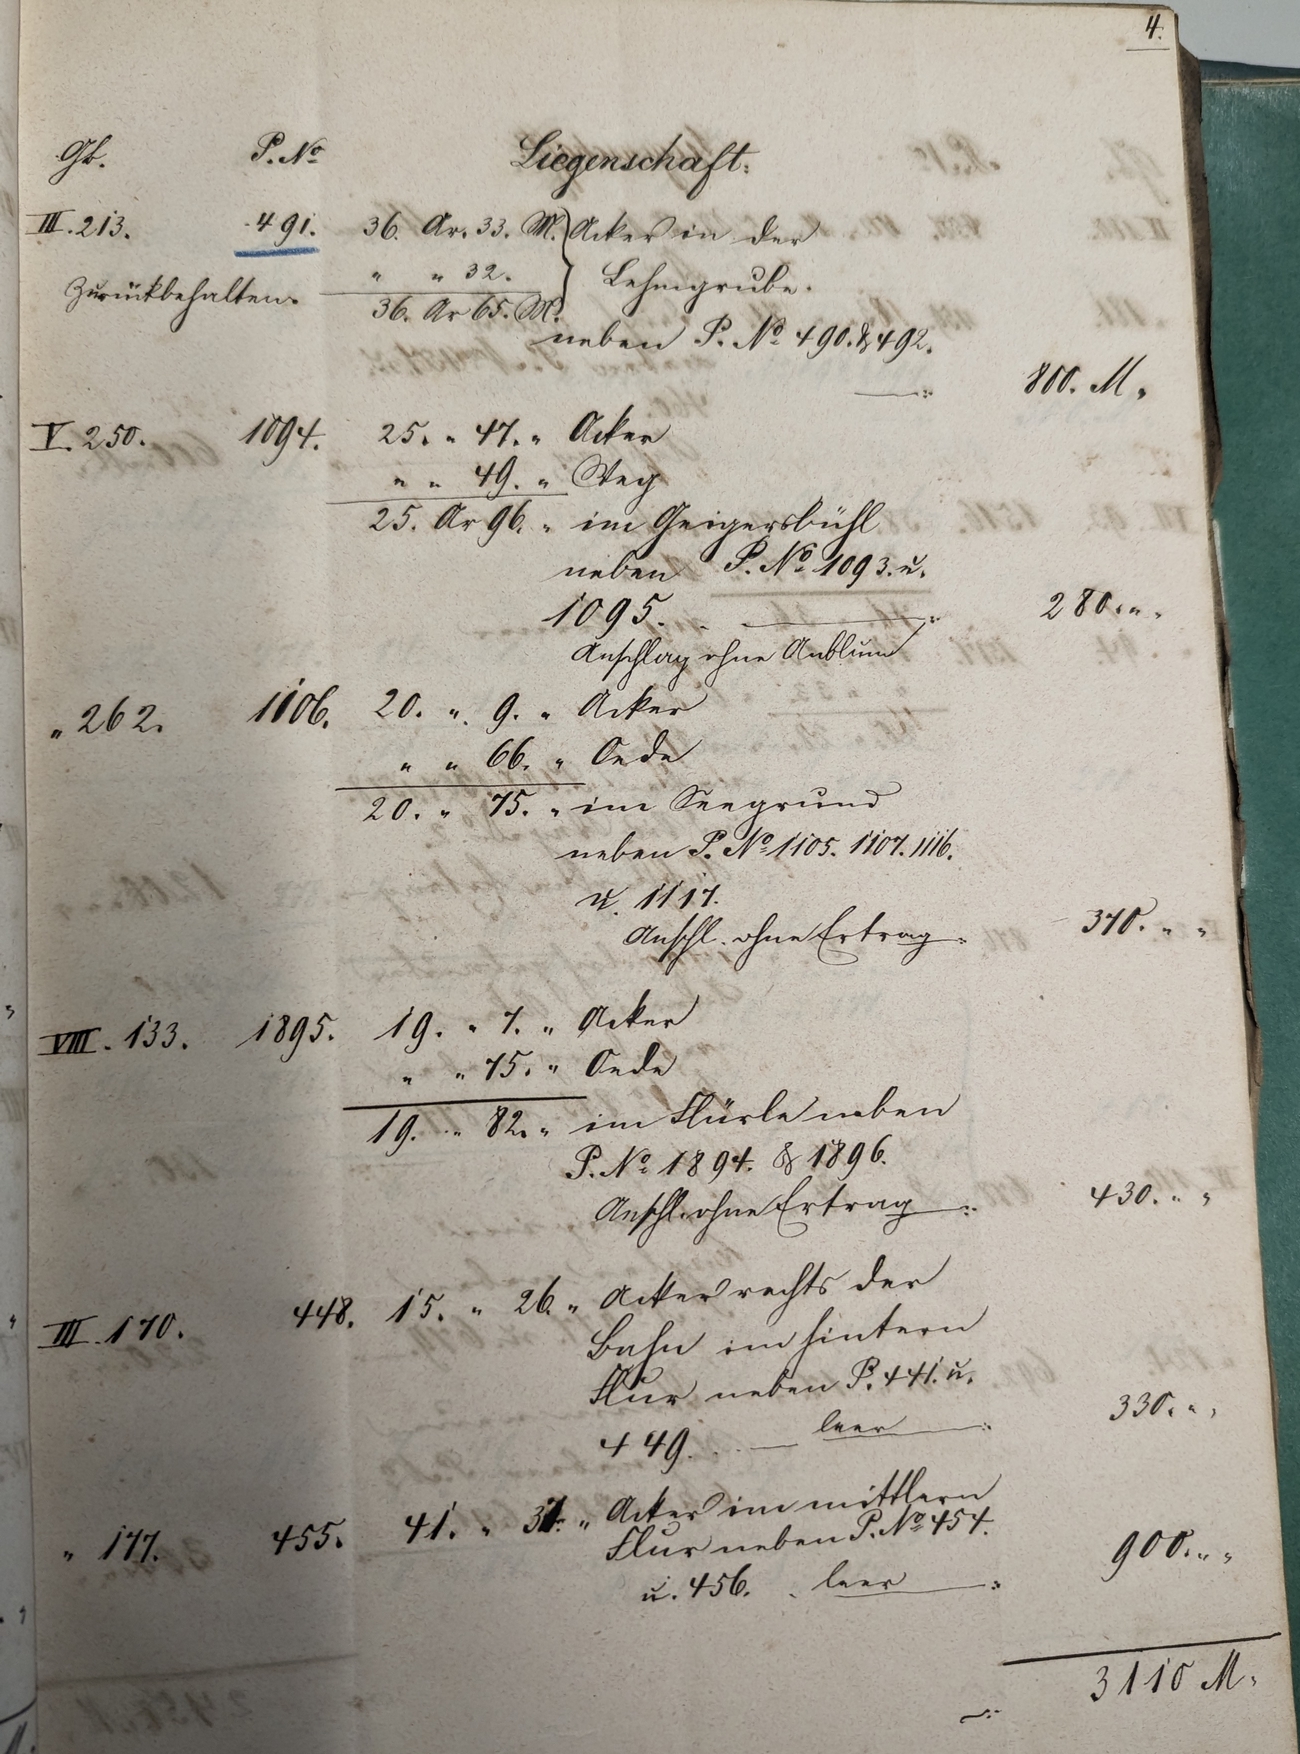 4.
Gb. P. No Liegenschaft:
III. 213. 491. 36. Ar. 33. M. Acker in der
" " 32. Lehmgrube.
Zurückbehalten.
36. Ar 65. M.
neben P. No 490. & 492.
800. M.
V. 250. 1094. 25. " 47. " Acker
" " 49. " Weg
25. Ar 96. " im Geigersbühl
neben P. No 1093. u.
1095. 280. " "
Anschlag ohne Anblum
" 262. 1106. 20. " 9. " Acker
" " 66. " Oede
20. " 75. " im Seegrund
neben P. No 1105. 1107. 1116.
u. 1117.
Anschl. ohne Ertrag 370. " "
VIII. 133. 1895. 19. " 7. " Acker
" " 75. " Oede
19. " 82. " im Flürle neben
P. No 1894. & 1896.
Anschl. ohne Ertrag 430. " "
III. 170. 448. 15. " 26. " Acker rechts der
Bahn im hintern
Flur neben P. 441. u.
449. leer 330. " "
" 177. 455. 41. " 31. " Acker im mittlern
Flur neben P. No 454.
u. 456. leer 900. " "
3110 M.